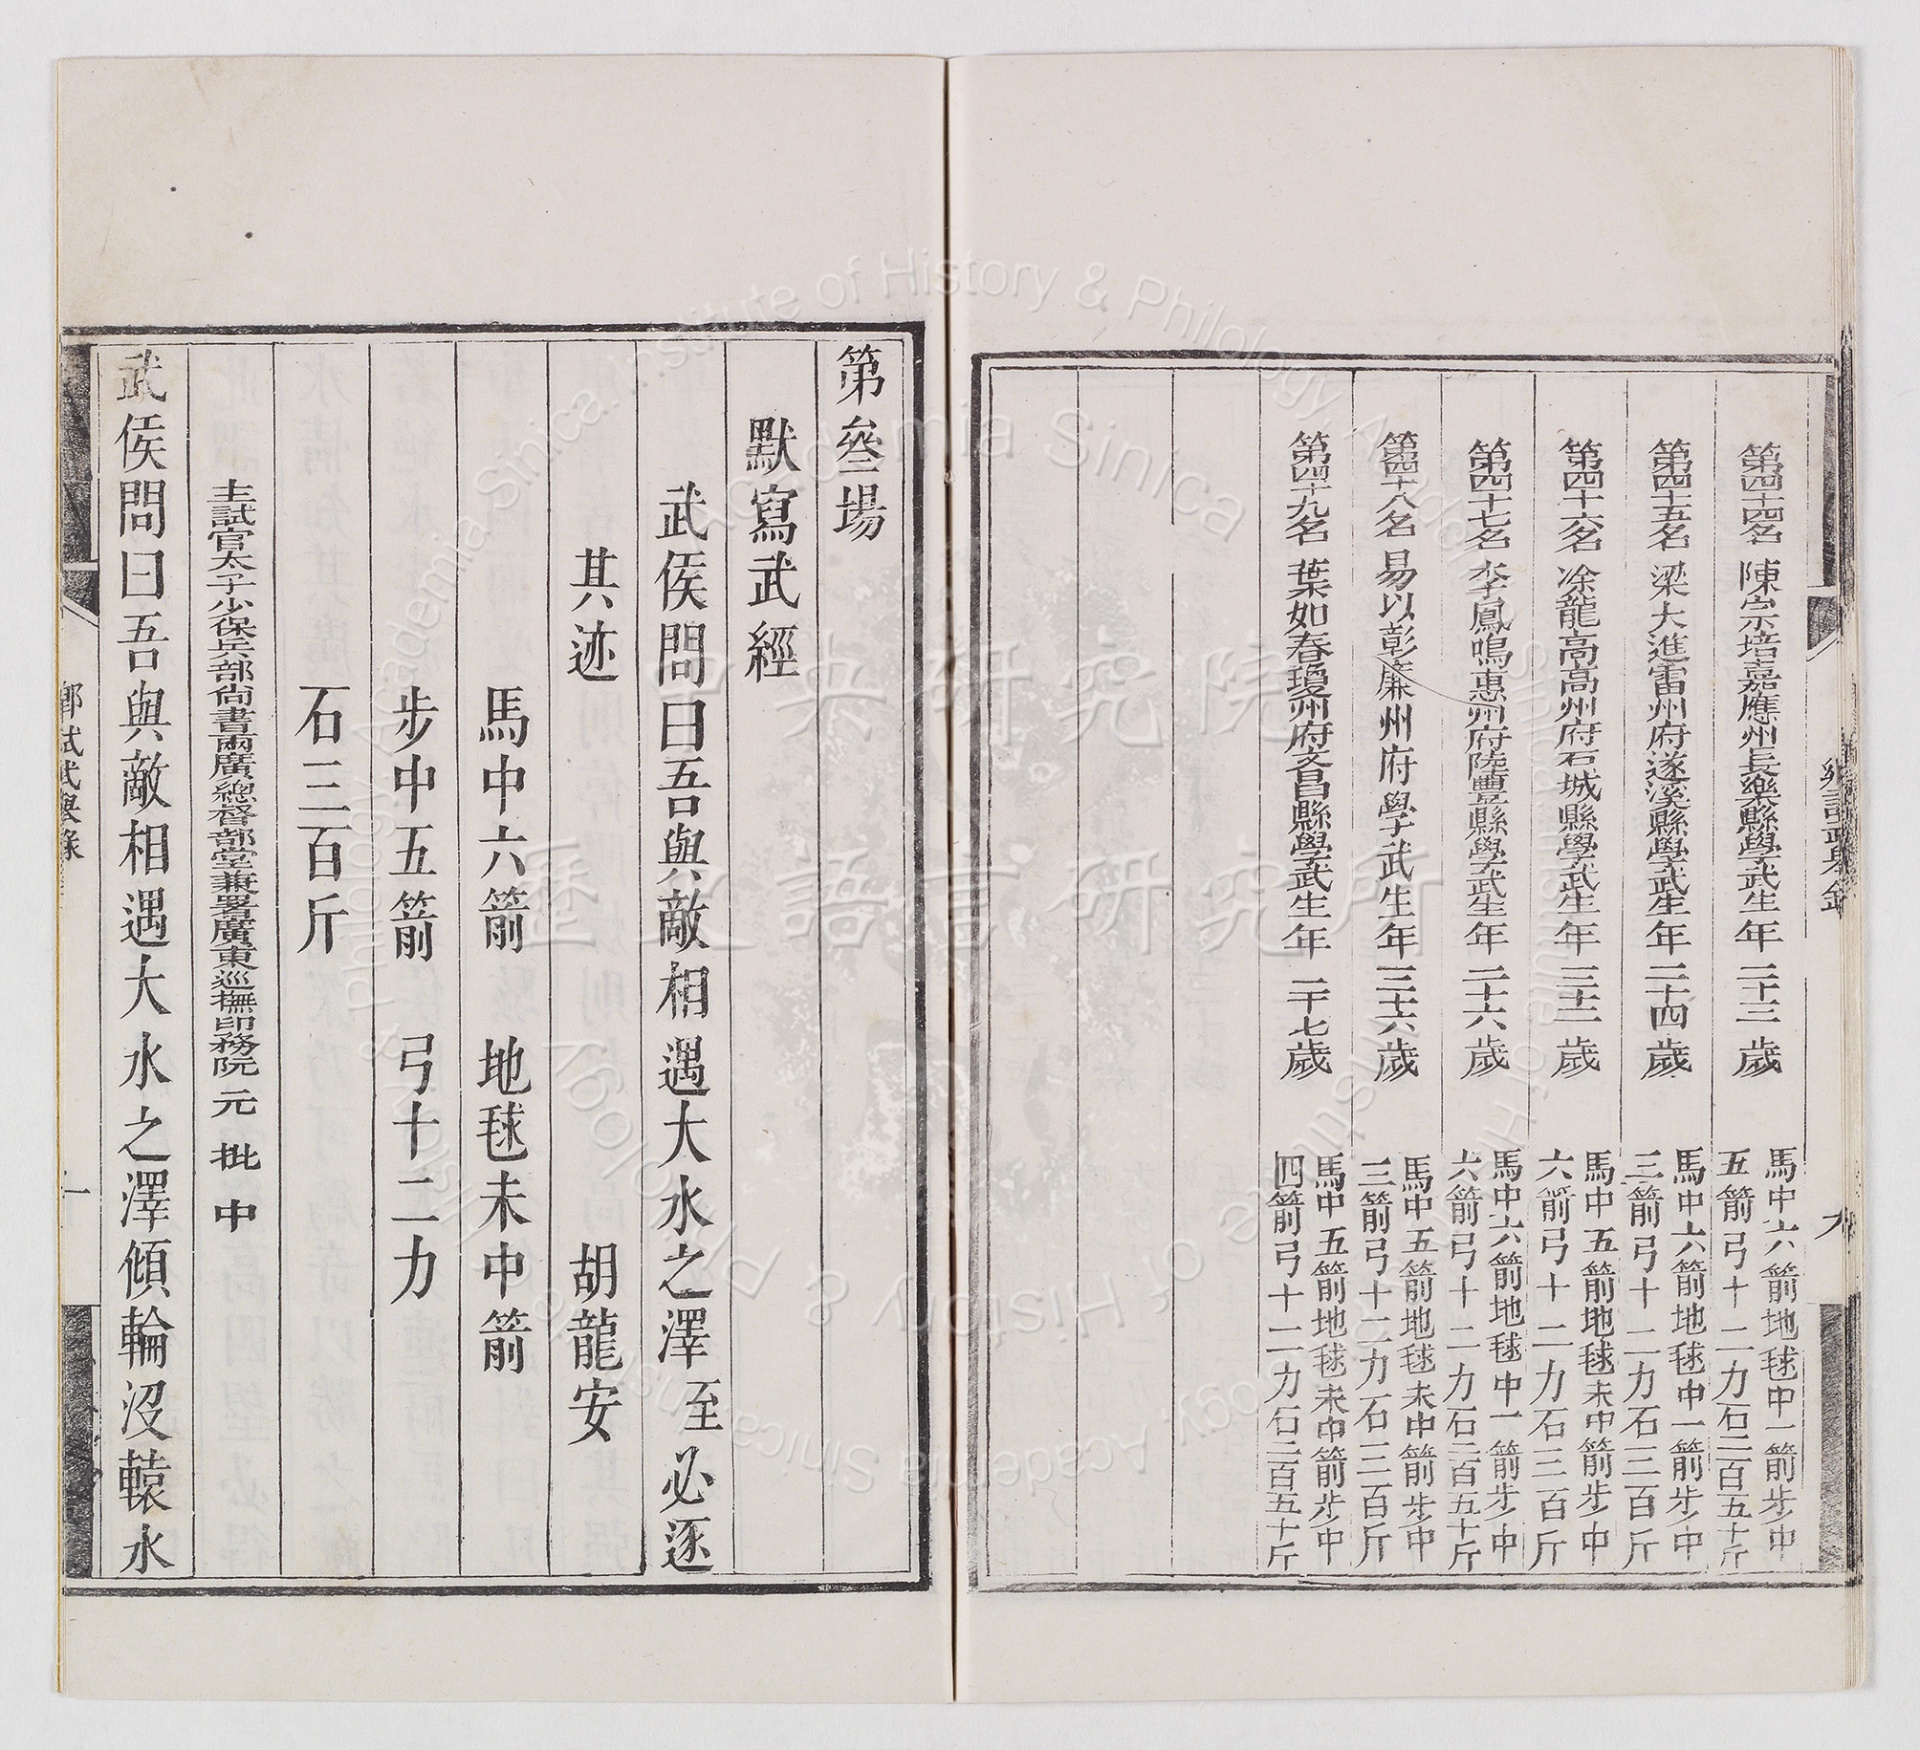 第四十四名 陳宗培嘉應州長樂縣學武生年二十三歲 馬中六箭地毬中一箭步中五箭弓十二力石二百五十斤
第四十五名 梁大進雷州府遂溪縣學武生年二十四歲 馬中六箭地毬中一箭步中三箭弓十二力石三百斤
第四十六名 凃龍高高州府石城縣學武生年三十二歲 馬中五箭地毬未中箭步中六箭弓十二力石三百斤
第四十七名 李鳳鳴惠州府陸豐縣學武生年二十六歲 馬中六箭地毬中一箭步中六箭弓十二力石二百五十斤
第四十八名 易以彰廉州府學武生年三十六歲 馬中五箭地毬未中箭步中三箭弓十二力石三百斤
第四十九名 葉如春瓊州府文昌縣學武生年二十七歲 馬中五箭地毬未中箭步中四箭弓十二力石二百五十斤
第叁場
默寫武經
武侯問曰吾與敵相遇大水之澤至必逐
其迹 胡龍安
馬中六箭 地毬未中箭
步中五箭 弓十二力
石三百斤
主試官太子少保兵部尚書兩廣總督部堂兼署廣東巡撫印務阮 元 批 中
武侯問曰吾與敵相遇大水之澤傾輪沒轅水
鄉試武舉錄
Academia Sinica Institute of History & Philology
中央研究院
歷史語言研究所